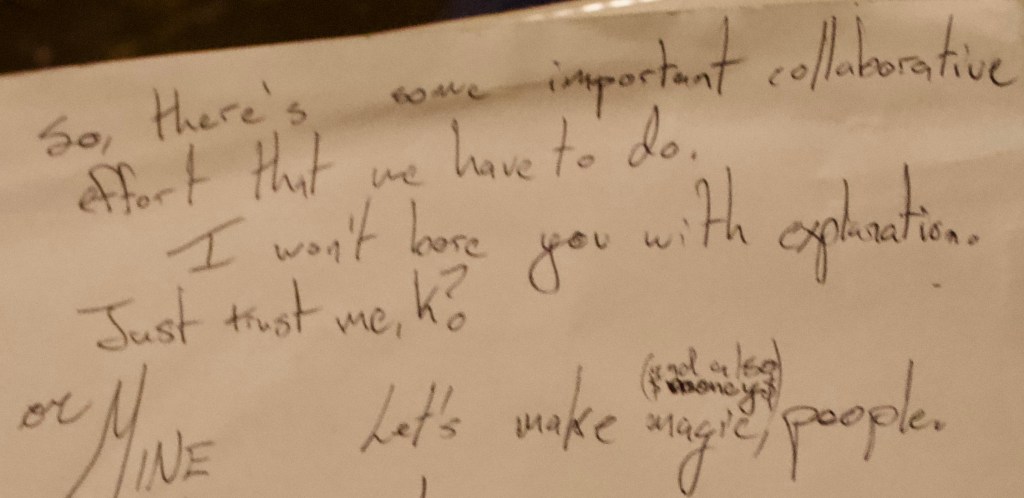 So, there's some important collaborative
effort that we have to do.
I won't bore you with explanation.
Just trust me, k?
(and also
$money$)
or MINE Let's make magic, poople.